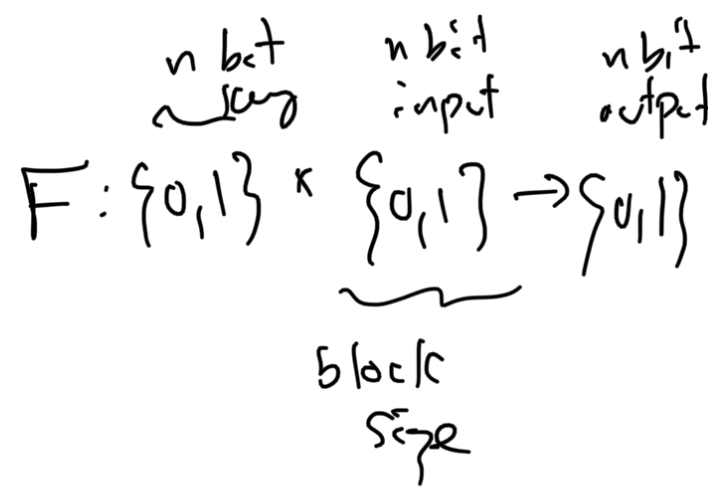 n bit key
n bit input
n bit output
F: {0,1} × {0,1} → {0,1}
block
size